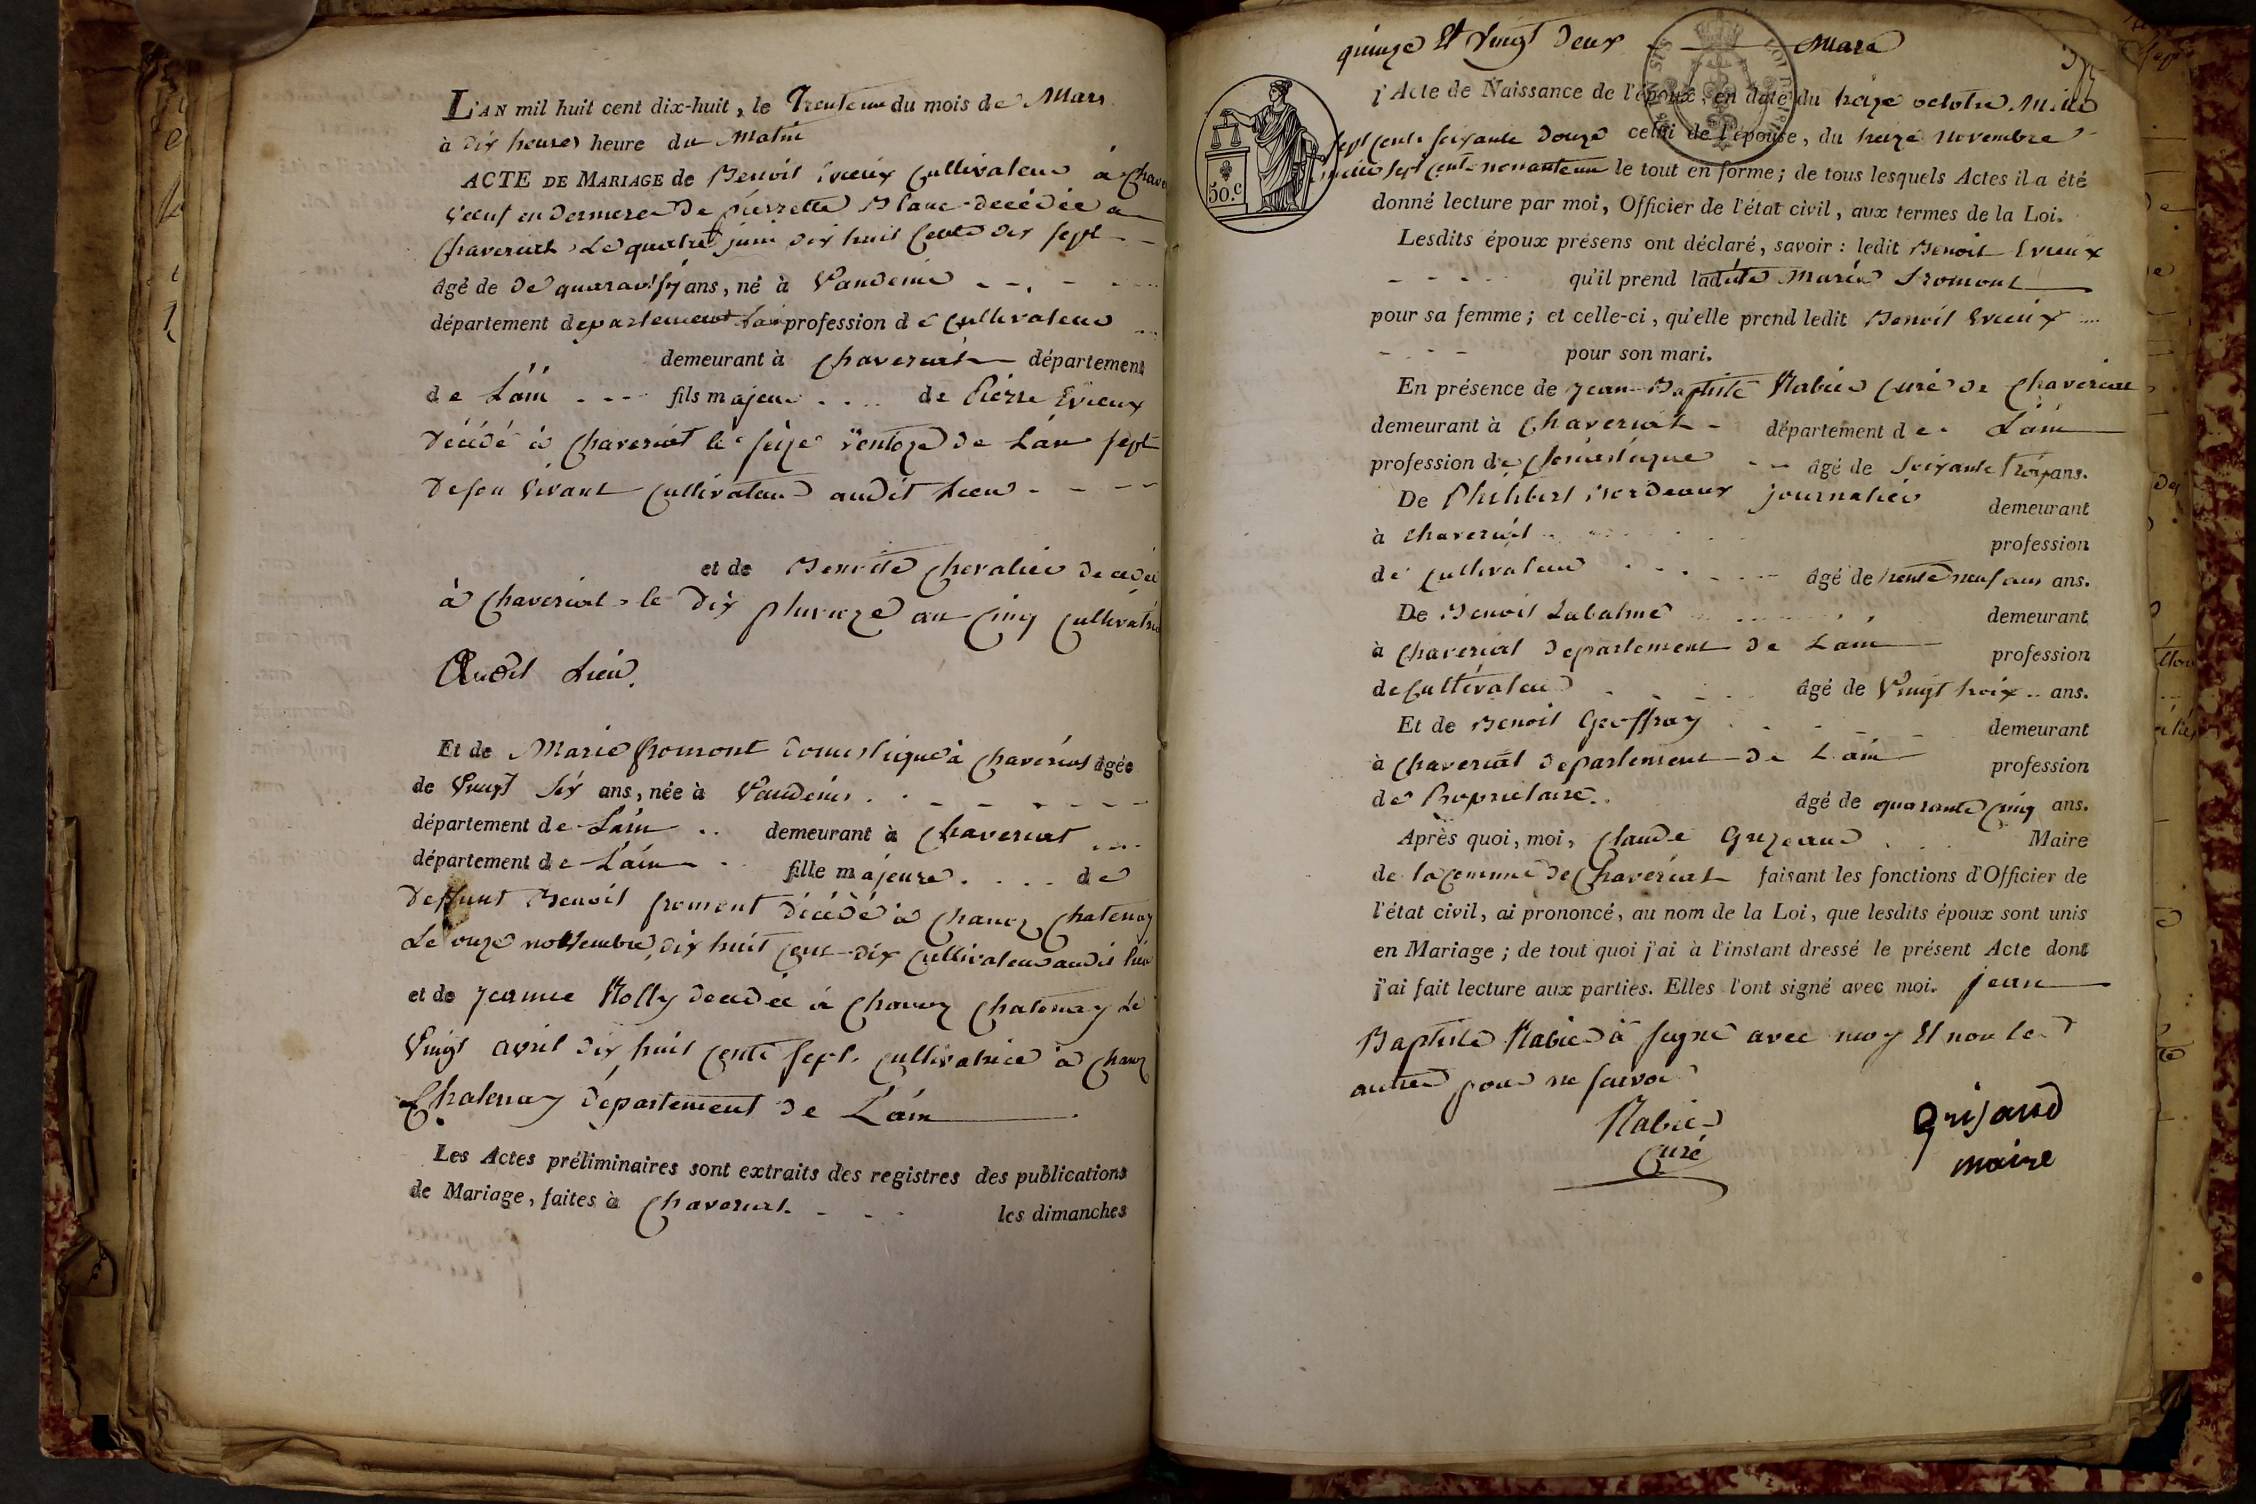 L'AN mil huit cent dix-huit, le Trente un du mois de Mars
à dix heures heure du Matin
ACTE DE MARIAGE de Benoit Evieux Cultivateur à Chave
veuf en dernier de pierrette Blanc décédée a
Chaveriat Le quatre juin dix huit Cent dix sept
âgé de de quarant ans, né à Vandeins
département departement profession de Cultivateur
demeurant à Chaveriat département
de L'ain fils majeur de Pierre Evieux
Décédé à Chaveriat le seize ventoze de L'an sept
De son vivant Cultivateur audit Lieu
et de Benoite Chevalier decedée
à Chaveriat le dix pluvioze an Cinq Cultivatrice
Audit Lieu.
Et de Marie fromont domestique à Chaveriat âgée
de Vingt Six ans, née à Vandeins
département de L'ain demeurant à Chaveriat
département de L'ain fille majeure de
Deffunt Benoit fromont décédé à Chanoz Chatenay
Le onze novembre dix huit Cent dix Cultivateur audit lieu
et de Jeanne Rolly decedée à Chanoz Chatenay Le
Vingt avril dix huit Cent Sept Cultivatrice à Chanoz
Chatenay département de L'ain
Les Actes préliminaires sont extraits des registres des publications
de Mariage, faites à Chaveriat les dimanches
quinze Et Vingt Deux Mars
50.c
l'Acte de Naissance de l'époux, en date du treize octobre Mille
sept Cents soixante douze celui de l'épouse, du treize novembre
mille sept Cent nonante un le tout en forme; de tous lesquels Actes il a été
donné lecture par moi, Officier de l'état civil, aux termes de la Loi.
Lesdits époux présens ont déclaré, savoir: ledit Benoit Evieux
qu'il prend ladite Marie Fromont
pour sa femme; et celle-ci, qu'elle prend ledit Benoit Evieux
pour son mari.
En présence de Jean-Baptiste Rabier Curé de Chaveriat
demeurant à Chaveriat département de L'ain
profession de âgé de Soixante trois ans.
De Philibert Bordeaux journalier demeurant
à Chaveriat profession
de Cultivateur âgé de trente neuf ans ans.
De Benoit Labalme demeurant
à Chaveriat departement de L'ain profession
de Cultivateur âgé de Vingt troix ans.
Et de Benoit Geoffray demeurant
à Chaveriat departement de L'ain profession
de Proprietaire âgé de quarante Cinq ans.
Après quoi, moi, Claude Grizeaud Maire
de la Commune de Chaveriat faisant les fonctions d'Officier de
l'état civil, ai prononcé, au nom de la Loi, que lesdits époux sont unis
en Mariage; de tout quoi j'ai à l'instant dressé le présent Acte dont
j'ai fait lecture aux parties. Elles l'ont signé avec moi. Jean
Baptiste Rabier à signé avec moy Et non les
autres pour ne savoir
Rabier
Curé
Grisaud
maire